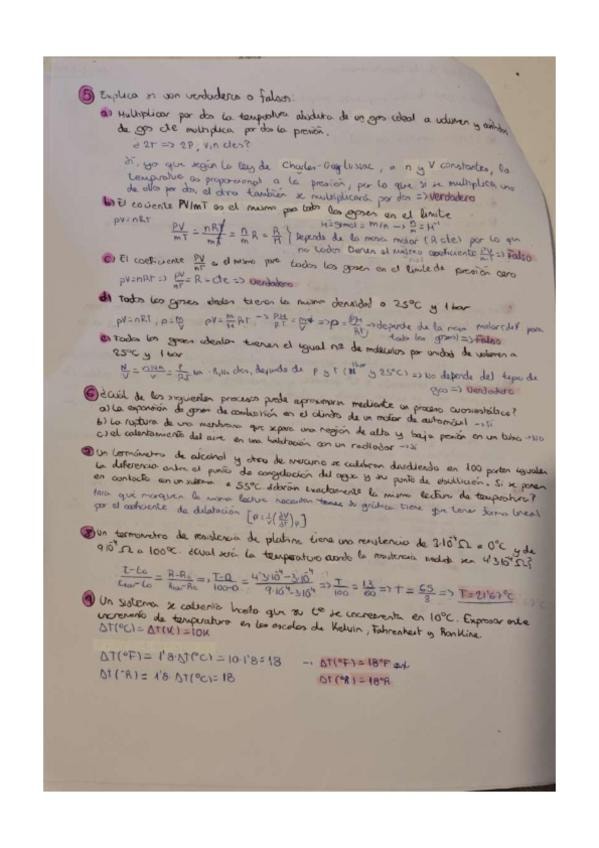 5 Explica si son verdaderos o falsos:
a) Multiplicar por dos la temperatura absoluta de un gas ideal a volumen y
de gas cte multiplica por dos la presión.
¿2T => 2P, V,n ctes?
Sí, ya que según la ley de Charles-Gay Lussac, a n y V constantes, la
temperatura es proporcional a la presión, por lo que si se multiplica uno
de ellos por dos, el otro también se multiplicará por dos => Verdadero
b) El cociente PV/mT es el mismo para todos los gases en el límite
PV=nRT PV/mT = nRT/mT = n/m R = R/M
Depende de la masa molar (R cte) por lo que
no todos tienen el mismo coeficiente PV/mT => Falso
c) El coeficiente PV/nT es el mismo para todos los gases en el límite de presión cero
PV=nRT => PV/nT = R = cte => Verdadero
d) Todos los gases ideales tienen la misma densidad a 25°C y 1 bar
PV=nRT, ρ=m/V PV=m/M RT => => depende de la masa molar
todos los gases) => Falso
e) Todos los gases ideales tienen el igual nº de moléculas por unidad de volumen a
25°C y 1 bar
depende de P y T (1 bar y 25°C) => No depende del tipo de
gas => Verdadero
6 ¿Cuál de los siguientes procesos puede aproximarse mediante un proceso cuasiestático?
a) La expansión de gases de combustión en el cilindro de un motor de automóvil -> Sí
b) La ruptura de una membrana que separa una región de alta y baja presión en un tubo -> No
c) el calentamiento del aire en una habitación con un radiador -> Sí
Un termómetro de alcohol y otro de mercurio se calibran dividiendo en 100 partes iguales
la diferencia entre el punto de congelación del agua y su punto de ebullición. Si se ponen
en contacto en un sistema a 55°C ¿darán exactamente la misma lectura de temperatura?
Para que marquen la misma lectura necesitan tener su gráfica tiene que tener forma lineal
por el coeficiente de dilatación
8 Un termómetro de resistencia de platino tiene una resistencia de 3·10⁻⁴ Ω a 0°C y de
9·10⁻⁴ Ω a 100°C. ¿Cuál será la temperatura cuando la resistencia medida sea 4'3·10⁻⁴ Ω?
=> T-0/100-0 = 4'3·10⁻⁴-3·10⁻⁴/9·10⁻⁴-3·10⁻⁴ => T/100 = 13/60 => T = 65/3 => T = 21'67°C
9 Un sistema se calienta hasta que su tª se incrementa en 10°C. Expresar este
incremento de temperatura en las escalas de Kelvin, Fahrenheit y Rankine.
ΔT(°C) = ΔT(K) = 10K
ΔT(°F) = 1'8·ΔT(°C) = 10·1'8 = 18 -> ΔT(°F) = 18°F
ΔT(°R) = 1'8·ΔT(°C) = 18 ΔT(°R) = 18°R